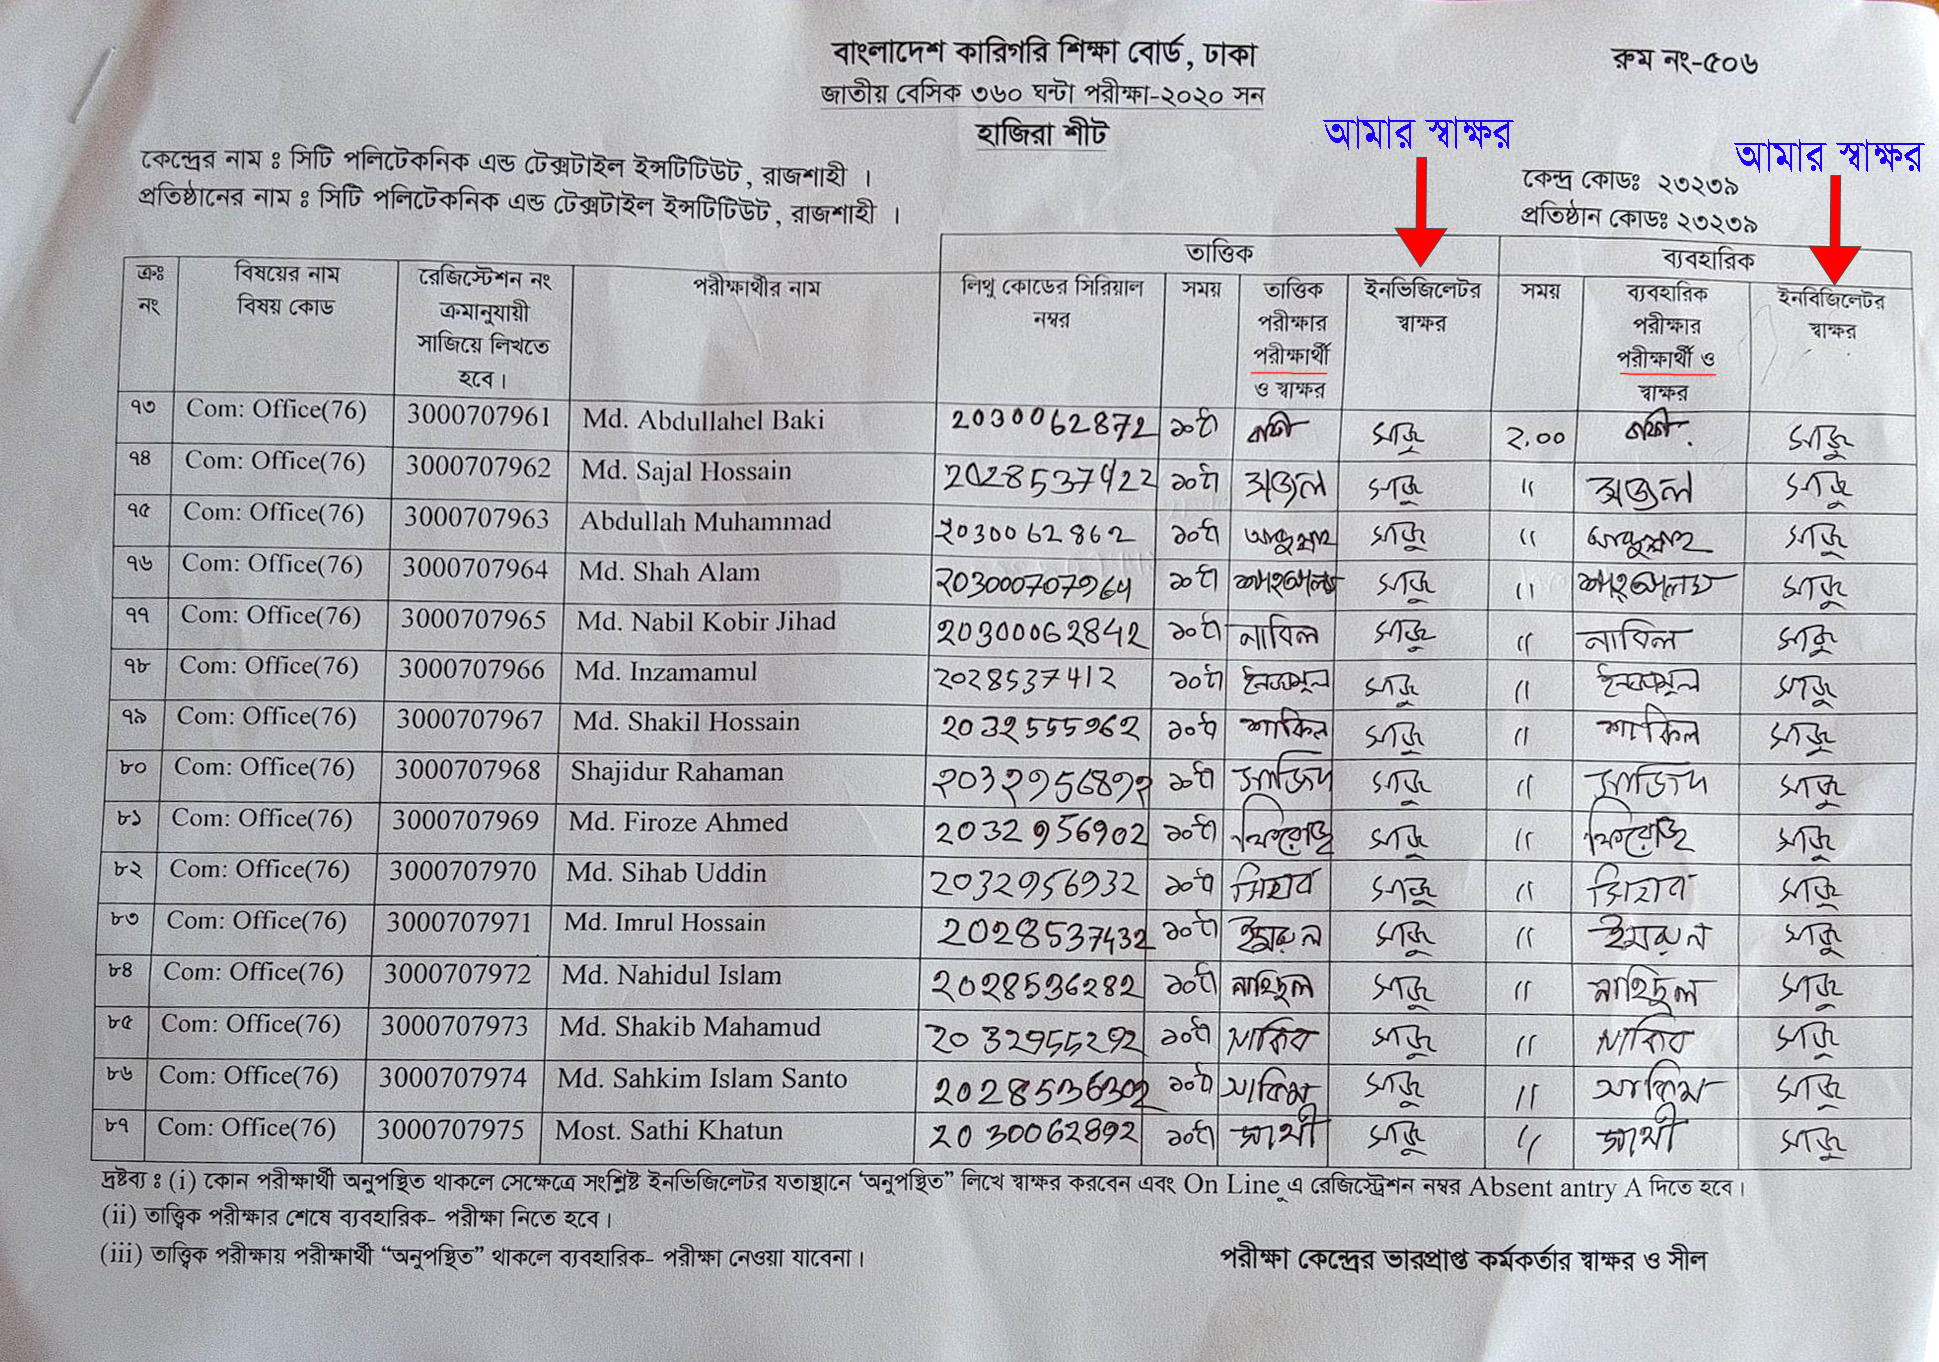 বাংলাদেশ কারিগরি শিক্ষা বোর্ড, ঢাকা
রুম নং-৫০৬
জাতীয় বেসিক ৩৬০ ঘন্টা পরীক্ষা-২০২০ সন
হাজিরা শীট
আমার স্বাক্ষর
আমার স্বাক্ষর
কেন্দ্রের নাম ঃ সিটি পলিটেকনিক এন্ড টেক্সটাইল ইন্সটিটিউট, রাজশাহী ।
কেন্দ্র কোডঃ ২৩২৩৯
প্রতিষ্ঠানের নাম ঃ সিটি পলিটেকনিক এন্ড টেক্সটাইল ইন্সটিটিউট, রাজশাহী ।
প্রতিষ্ঠান কোডঃ ২৩২৩৯
তাত্তিক ব্যবহারিক
ক্রঃ নং বিষয়ের নাম বিষয় কোড রেজিস্টেশন নং ক্রমানুযায়ী সাজিয়ে লিখতে হবে। পরীক্ষার্থীর নাম লিথু কোডের সিরিয়াল নম্বর সময় তাত্তিক পরীক্ষার পরীক্ষার্থী ও স্বাক্ষর ইনভিজিলেটর স্বাক্ষর সময় ব্যবহারিক পরীক্ষার পরীক্ষার্থী ও স্বাক্ষর ইনবিজিলেটর স্বাক্ষর
৭৩ Com: Office(76) 3000707961 Md. Abdullahel Baki 2030062872 ১০টা বাকী সাজু ২.০০ বাকী সাজু
৭৪ Com: Office(76) 3000707962 Md. Sajal Hossain 2028537422 ১০টা সজল সাজু " সজল সাজু
৭৫ Com: Office(76) 3000707963 Abdullah Muhammad 2030062862 ১০টা আব্দুল্লাহ সাজু " আব্দুল্লাহ সাজু
৭৬ Com: Office(76) 3000707964 Md. Shah Alam 203000707964 ১০টা শাহআলম সাজু " শাহআলম সাজু
৭৭ Com: Office(76) 3000707965 Md. Nabil Kobir Jihad 20300062842 ১০টা নাবিল সাজু " নাবিল সাজু
৭৮ Com: Office(76) 3000707966 Md. Inzamamul 2028537412 ১০টা সাজু " সাজু
৭৯ Com: Office(76) 3000707967 Md. Shakil Hossain 2032555962 ১০টা শাকিল সাজু " শাকিল সাজু
৮০ Com: Office(76) 3000707968 Shajidur Rahaman 2032956892 ১০টা সাজিদ সাজু " সাজিদ সাজু
৮১ Com: Office(76) 3000707969 Md. Firoze Ahmed 2032956902 ১০টা ফিরোজ সাজু " ফিরোজ সাজু
৮২ Com: Office(76) 3000707970 Md. Sihab Uddin 2032956932 ১০টা সিহাব সাজু " সিহাব সাজু
৮৩ Com: Office(76) 3000707971 Md. Imrul Hossain 2028537432 ১০টা ইমরুল সাজু " ইমরুল সাজু
৮৪ Com: Office(76) 3000707972 Md. Nahidul Islam 2028536282 ১০টা নাহিদুল সাজু " নাহিদুল সাজু
৮৫ Com: Office(76) 3000707973 Md. Shakib Mahamud 2032955292 ১০টা সাকিব সাজু " সাকিব সাজু
৮৬ Com: Office(76) 3000707974 Md. Sahkim Islam Santo 2028536302 ১০টা সাকিম সাজু " সাকিম সাজু
৮৭ Com: Office(76) 3000707975 Most. Sathi Khatun 2030062892 ১০টা সাথী সাজু " সাথী সাজু
দ্রষ্টব্য ঃ (i) কোন পরীক্ষার্থী অনুপস্থিত থাকলে সেক্ষেত্রে সংশ্লিষ্ট ইনভিজিলেটর যতাস্থানে “অনুপস্থিত” লিখে স্বাক্ষর করবেন এবং On Line এ রেজিস্ট্রেশন নম্বর Absent antry A দিতে হবে।
(ii) তাত্ত্বিক পরীক্ষার শেষে ব্যবহারিক- পরীক্ষা নিতে হবে।
(iii) তাত্ত্বিক পরীক্ষায় পরীক্ষার্থী “অনুপস্থিত” থাকলে ব্যবহারিক- পরীক্ষা নেওয়া যাবেনা।
পরীক্ষা কেন্দ্রের ভারপ্রাপ্ত কর্মকর্তার স্বাক্ষর ও সীল